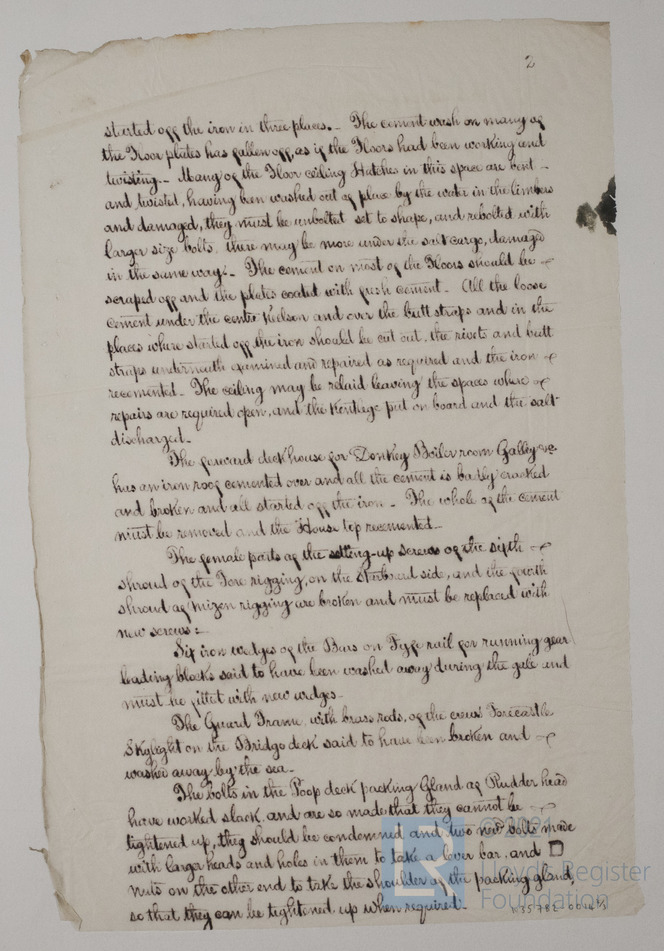 2
started off the iron in three places._ The cement wash on many of
the Floor plates has fallen off, as if the Floors had been working and
twisting._ Many of the Floor ceiling Hatches in this space are bent
and twisted, having been washed out of place by the water in the limbers
and damaged, they must be unbolted set to shape, and rebolted with
larger size bolts, there may be more under the salt cargo, damaged
in the same way._ The cement on most of the Floors should be
scraped off and the plates coated with fresh cement._ All the loose
cement under the centre Keelson and over the butt straps and in the
places where started off the iron should be cut out, the rivets and butt
straps underneath examined and repaired as required and the iron
recemented._ The ceiling may be relaid leaving the spaces where
repairs are required open, and the Kentledge put on board and the salt
discharged._
The forward deck house for Donkey Boiler room Galley &c
has an iron roof cemented over and all the cement is badly cracked
and broken and all started off the iron._ The whole of the cement
must be removed and the House top recemented._
The female parts of the setting-up screws of the sixth
shroud of the Fore rigging, on the Starboard side, and the fourth
shroud of mizen rigging are broken and must be replaced with
new screws:_
Six iron wedges of the Bars on Fyfe rail for running gear
leading blocks said to have been washed away during the gale and
must be fitted with new wedges._
The Guard Frame, with brass rods, of the crews Forecastle
Skylight on the Bridge deck said to have been broken and
washed away by the sea._
The bolts in the Poop deck packing Gland of Rudder head
have worked slack, and are so made that they cannot be
tightened up, they should be condemned and two new bolts made
with larger heads and holes in them to take a lever bar, and □
nuts on the other end to take the shoulder of the packing gland,
so that they can be tightened up when required._
© 2021
Lloyd's Register
Foundation